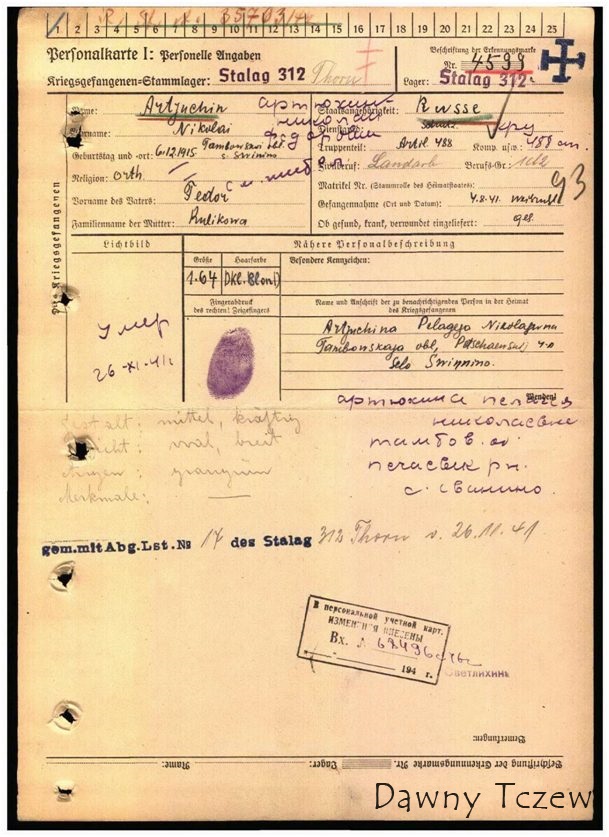 1 2 3 4 5 6 7 8 9 10 11 12 13 14 15 16 17 18 19 20 21 22 23 24 25
Personalkarte I: Personelle Angaben
Beschriftung der Erkennungsmarke
Nr. 4599
Kriegsgefangenen-Stammlager: Stalag 312 Thorn
Lager: Stalag 312
Name: Artjuchin
Артюхин
Staatsangehörigkeit: Russe
Vorname: Nikolai
Николай
Dienstgrad: Soldat
Федорович
Geburtstag und -ort: 6.12.1915 Tambowskaj obl.
s. Swinino
Truppenteil: Artl 488 Komp. usw.:
Religion: orth.
Zivilberuf: Landarb. Berufs-Gr.:
Vorname des Vaters: Fedor
Matrikel Nr. (Stammrolle des Heimatstaates):
93
Gefangennahme (Ort und Datum): 4.8.41.
Familienname der Mutter: Kulikowa
Ob gesund, krank, verwundet eingeliefert: ges.
Des Kriegsgefangenen
Lichtbild
Nähere Personalbeschreibung
Größe Haarfarbe Besondere Kennzeichen:
1.64 Dkl. Blond
Fingerabdruck
des rechten! Zeigefingers
Name und Anschrift der zu benachrichtigenden Person in der Heimat
des Kriegsgefangenen
Умер
26-XI-41г
Artjuchina Pelageja Nikolajewna
Tambowskaja obl,
Selo Swinnino.
Wenden!
Артюхина Пелагея
Николаевна
Тамбов. об.
с. Свинино.
Gestalt: mittel, kräftig
Gesicht: oval, breit
Augen: graugrün
Merkmale: —
gem. mit Abg. Lst. № 17 des Stalag 312 Thorn v. 26.11.41
В персональной учетной карт.
ИЗМЕНЕНИЯ ВНЕСЕНЫ
Вх. №
194 г.
Светлихинь
Bemerkungen:
Beschriftung der Erkennungsmarke Nr. Lager: Name:
Dawny Tczew